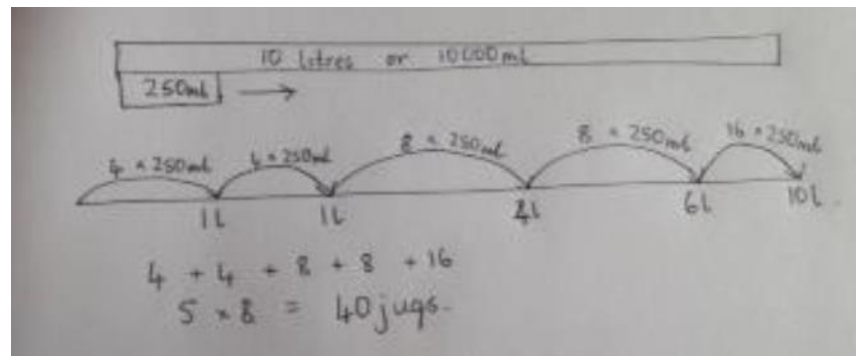 10 litres or 10000ml
250ml
4 × 250ml 4 × 250ml 8 × 250ml 8 × 250ml 16 × 250ml
1L 1L 4L 6L 10L
4 + 4 + 8 + 8 + 16
5 × 8 = 40 jugs.